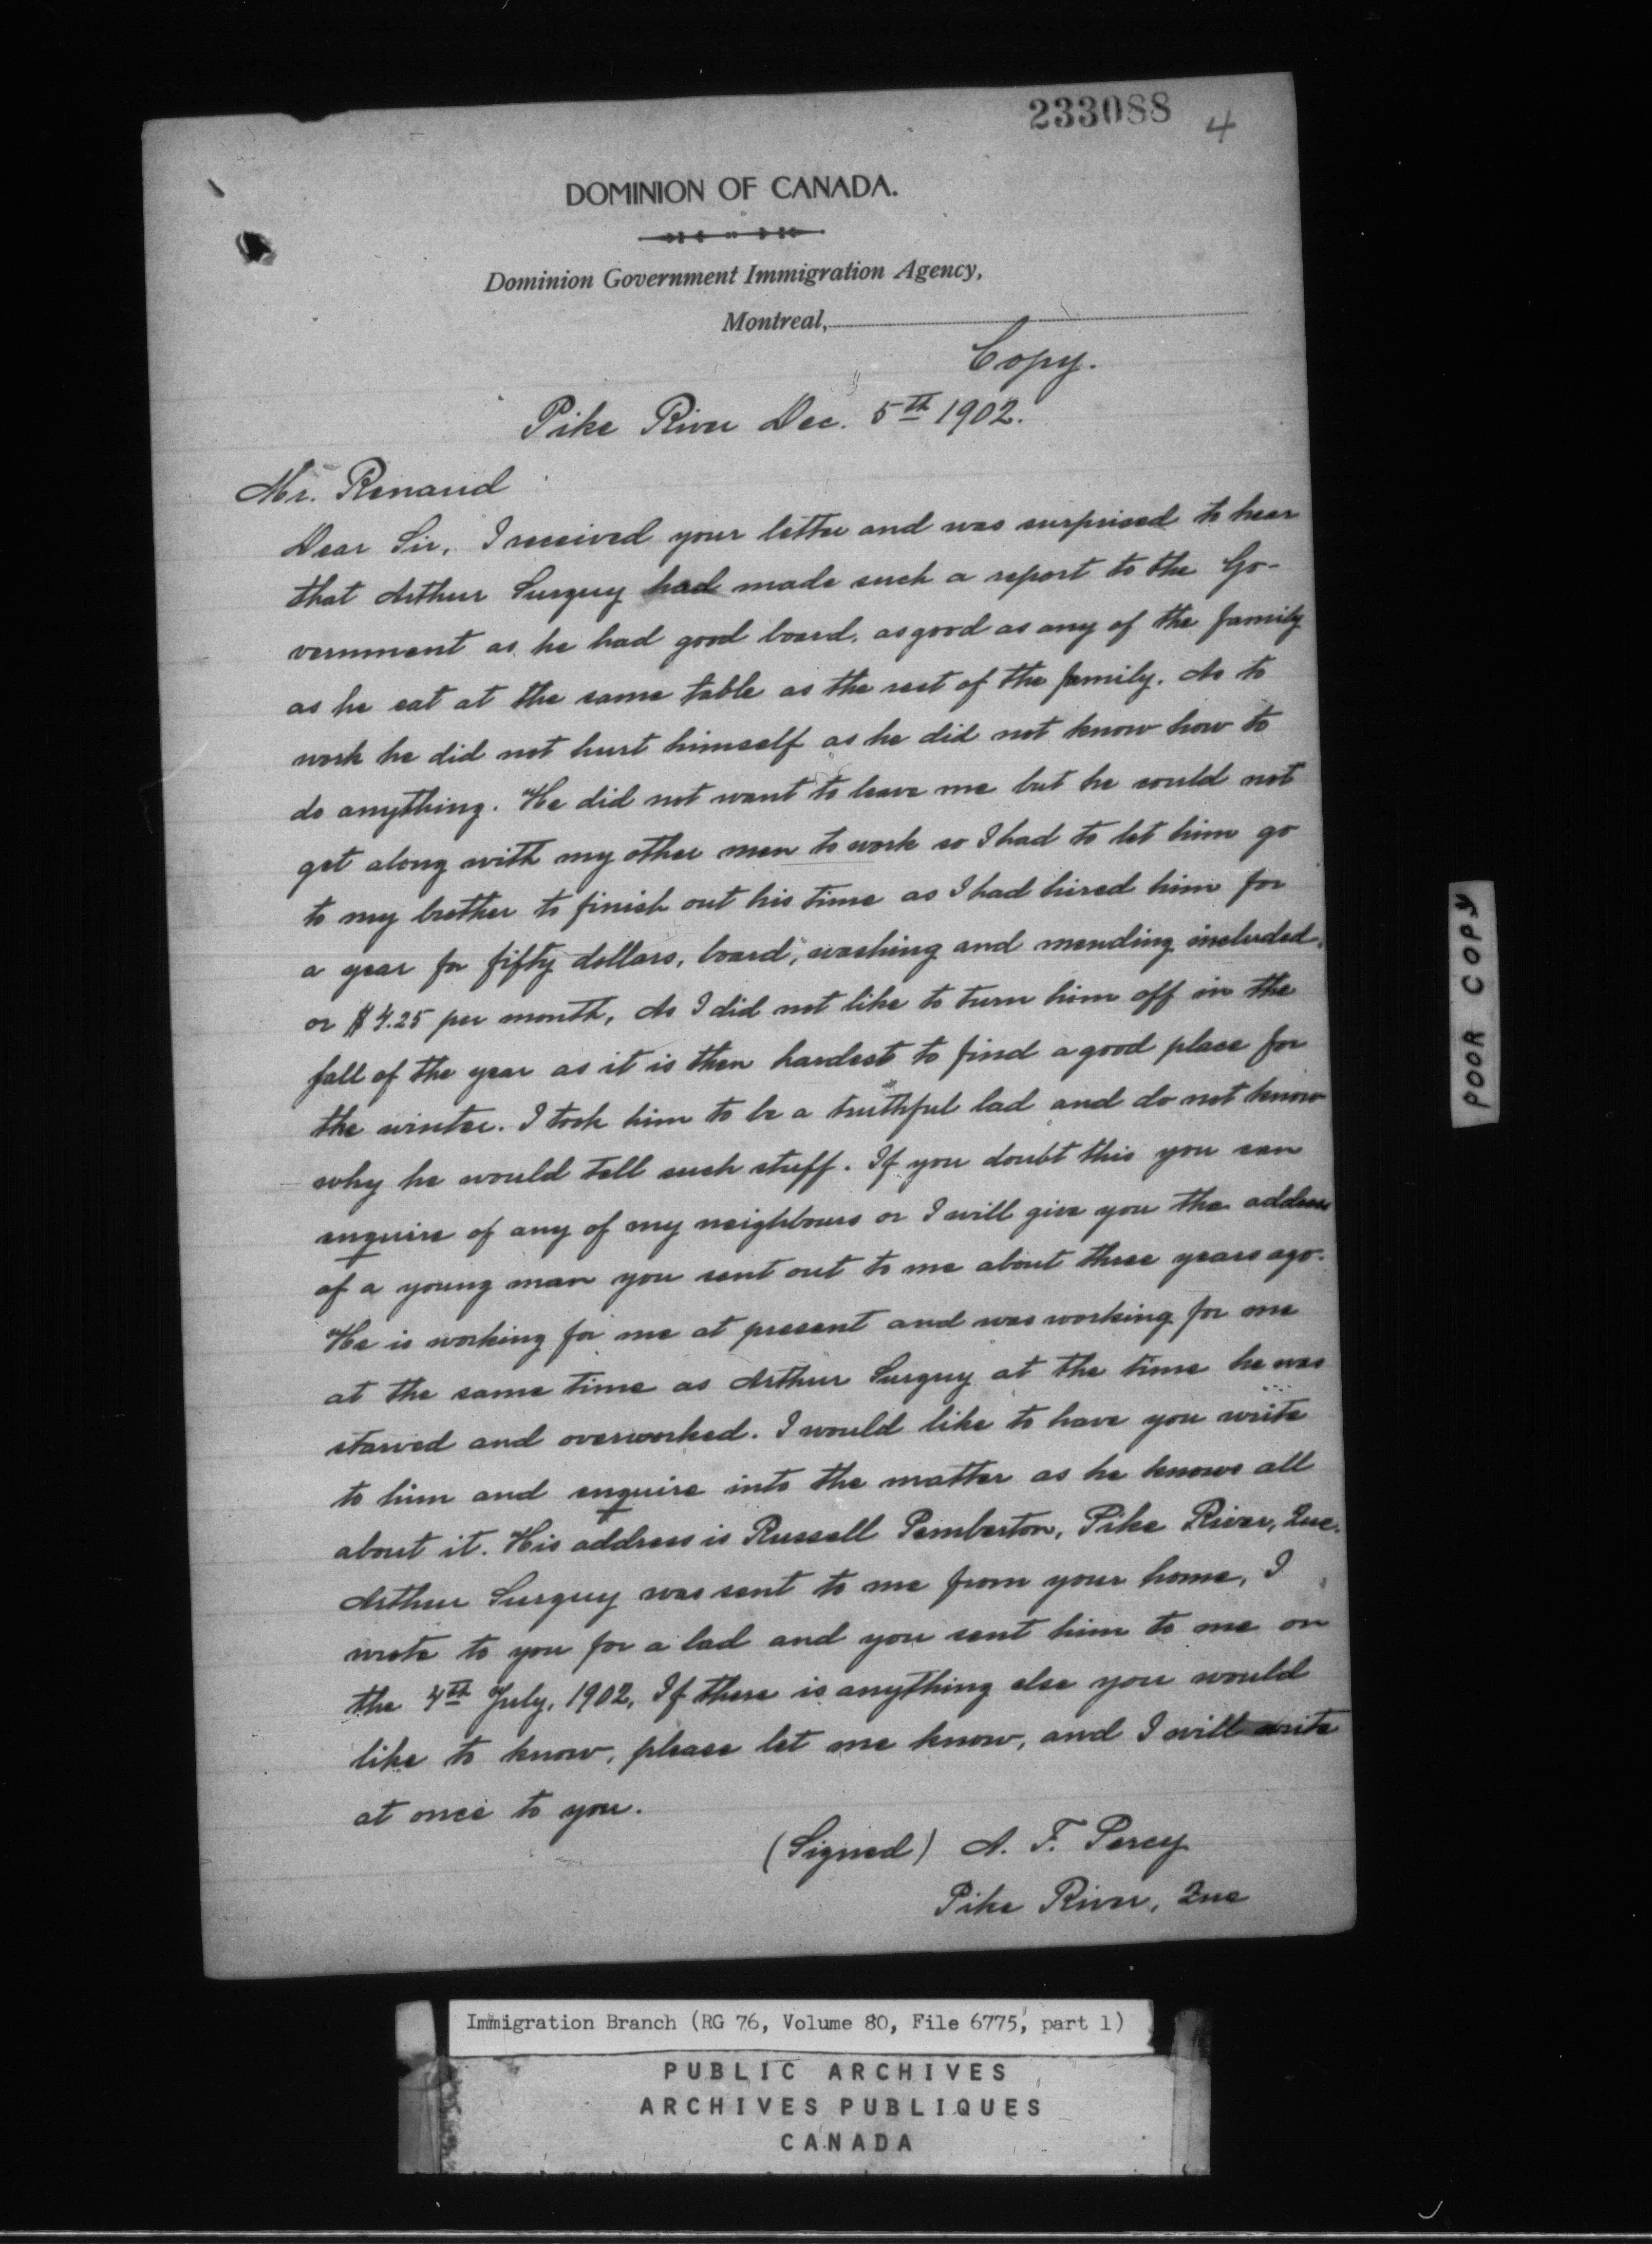 233088 4
DOMINION OF CANADA.
Dominion Government Immigration Agency,
Montreal,
Copy.
Pike River Dec. 5th 1902.
Mr. Renaud
Dear Sir, I received your letter and was surprised to hear
that Arthur Surguy had made such a report to the Go-
vernment as he had good board, as good as any of the family
as he eat at the same table as the rest of the family. As to
work he did not hurt himself as he did not know how to
do anything. He did not want to leave me but he could not
get along with my other men to work so I had to let him go
to my brother to finish out his time as I had hired him for
a year for fifty dollars, board, washing and mending included,
or $4.25 per month, As I did not like to turn him off in the
fall of the year as it is then hardest to find a good place for
the winter. I took him to be a truthful lad and do not know
why he would tell such stuff. If you doubt this you can
enquire of any of my neighbours or I will give you the address
of a young man you sent out to me about three years ago.
He is working for me at present and was working for me
at the same time as Arthur Surguy at the time he was
starved and overworked. I would like to have you write
to him and enquire into the matter as he knows all
about it. His address is Russell Pemberton, Pike River, Que.
Arthur Surguy was sent to me from your home, I
wrote to you for a lad and you sent him to me on
the 4th July, 1902, If there is anything else you would
like to know, please let me know, and I will write
at once to you.
(Signed) A. F. Percy
Pike River, Que
POOR COPY
Immigration Branch (RG 76, Volume 80, File 6775, part 1)
PUBLIC ARCHIVES
ARCHIVES PUBLIQUES
CANADA